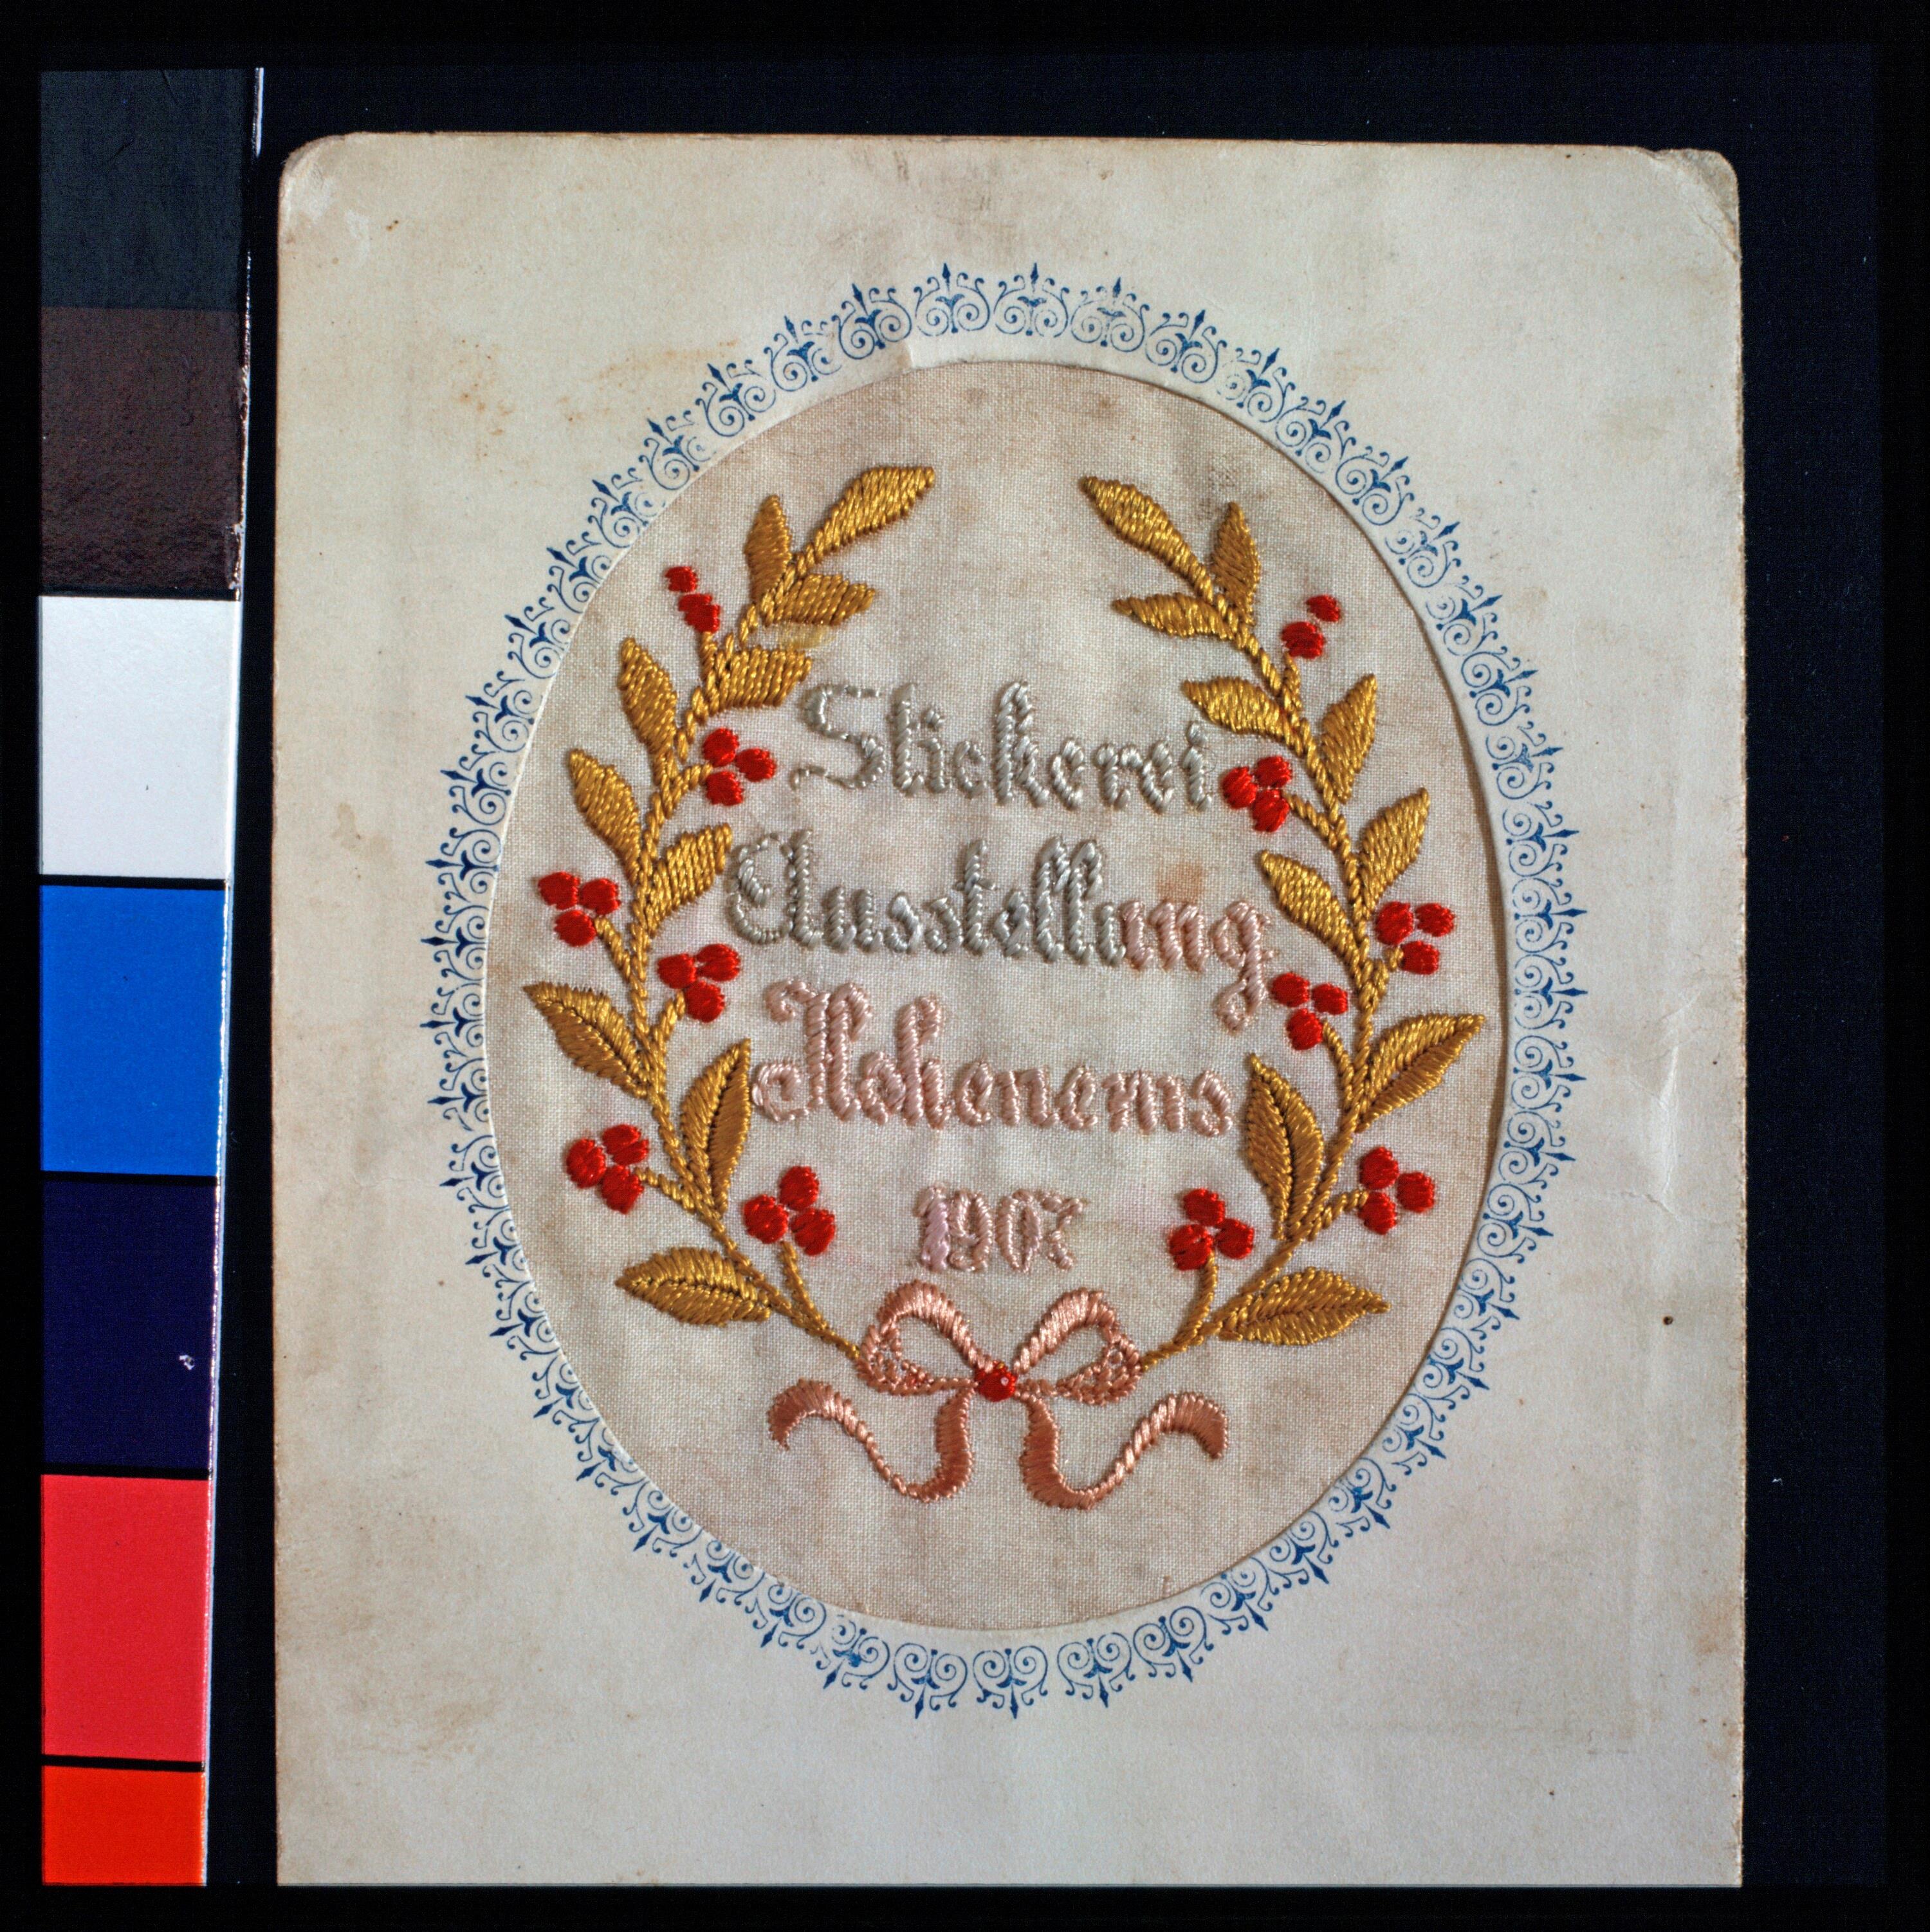 Stickerei
Ausstellung
Hohenems
1907